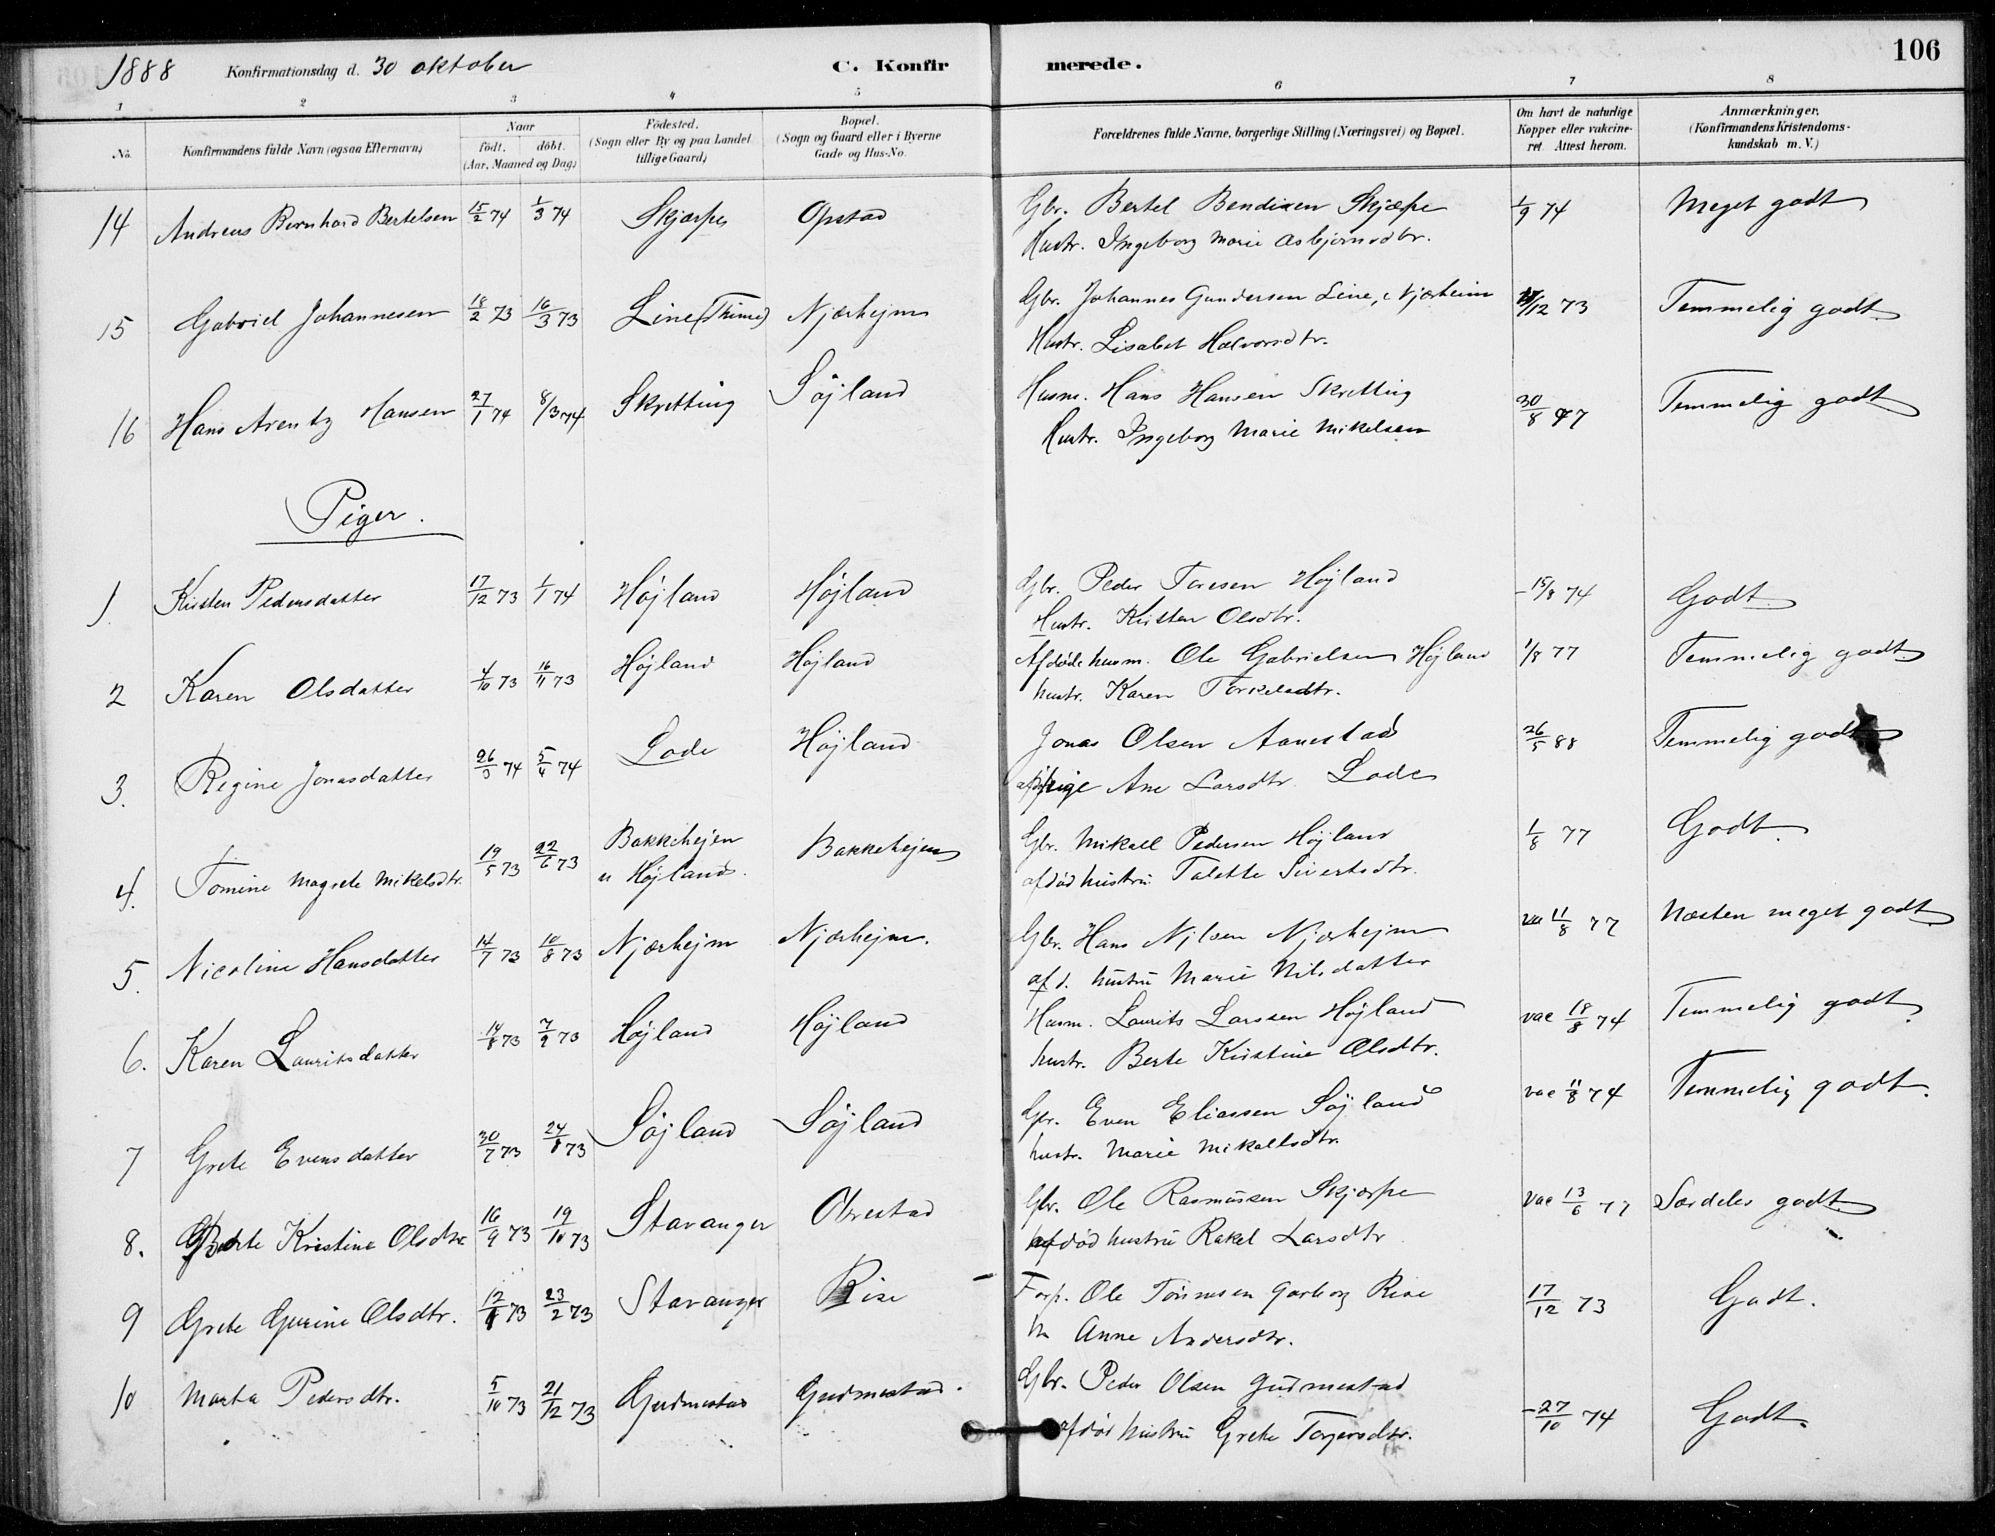 1888 Konfirmationsdag d. 30 oktober C. Konfirmerede. 106
1 2 3 4 5 6 7 8
No. Konfirmandens fulde Navn (ogsaa Efternavn) Naar født. døbt. (Aar, Maaned og Dag) Fødested. (Sogn eller By og paa Landet tillige Gaard) Bopæl. (Sogn og Gaard eller i Byerne Gade og Hus-No. Forældrenes fulde Navne, borgerlige Stilling (Næringsvei) og Bopæl. Om havt de naturlige Kopper eller vakcineret. Attest herom. Anmærkninger. (Konfirmandens Kristendomskundskab m. V.)
14 Andreas Bernhard Bertelsen 15/2 74 1/3 74 Skjærpe Opstad Gbr. Bertel Bendixen Skjæpe 1/9 74 Meget godt
Hustr. Ingeborg Marie Asbjørnsdtr.
15 Gabriel Johannesen 18/2 73 16/3 73 Line (Thime) Njærhejm Gbr. Johannes Gundersen Line, Njærheim /12 73 Temmelig godt
Hustr. Lisabet Halvorsdtr.
16 Hans Arentz Hansen 27/1 74 8/3 74 Skretting Søjland Husm. Hans Hansen Skretting 30/8 77 Temmelig godt
Hustr. Ingeborg Marie Mikelsen
Piger.
1. Kirsten Pedersdatter 17/12 73 1/1 74 Højland Højland Gbr. Peder Toresen Højland - 15/8 74 Godt
Hustr. Kirsten Olsdtr.
2 Karen Olsdatter 4/10 73 16/11 73 Højland Højland Afdøde husm. Ole Gabrielsen Højland 1/8 77 Temmelig godt
hustr. Karen Torkelsdtr.
3. Regine Jonasdatter 26/3 74 5/4 74 Lode Højland Jonas Olsen Aanestad 26/5 88 Temmelig godt
pige Ane Larsdtr. Lode
4. Tomine Magrete Mikelsdtr. 19/5 73 22/6 73 Bakkehejen Bakkehejen Gbr. Mikall Pedersen Højland 1/8 77 Godt.
u Højland. afdød hustru Talette Sivertsdtr.
5. Nicoline Hansdatter 14/7 73 10/8 73 Njærhejm Njærhejm. Gbr. Hans Njlsen Njærhejm vac 11/8 77 Næsten meget godt
afd. hustru Marie Nilsdatter
6. Karen Lauritsdatter 14/8 73 7/9 73 Højland Højland Husm. Laurits Larssen Højland vac 18/8 74 Temmelig godt
hustr. Berte Kristine Olsdtr.
7 Grete Evensdatter 30/7 73 24/8 73 Søjland Søjland Gbr. Even Eliassen Søjland vac 11/8 74 Temmelig godt.
hustr. Marie Mikallsdtr.
8. Berte Kristine Olsdtr 16/9 73 19/10 73 Stavanger Obrestad Gbr. Ole Rasmussen Skjærpe vac 13/6 77 Særdeles godt
afdød hustru Rakel Larsdtr
9 Grete Gurine Olsdtr. 12/1 73 23/2 73 Stavanger Rise Forp. Ole Tønnesen Garborg Rise 17/12 73 Godt.
h Anne Andersdtr.
10 Marta Pedersdtr. 5/10 73 21/12 73 Gudmestad Gudmestad. Gbr. Peder Olsen Gudmestad - 27/10 74 Godt.
afdød hustru Grete Torgersdtr.